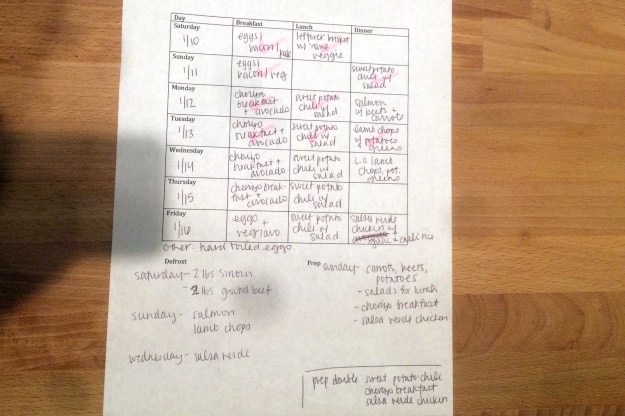 Day Breakfast Lunch Dinner
Saturday
1/10
eggs/
bacon/kale
leftover brisket
w/ some
veggie
Sunday
1/11
eggs/
bacon/veg
sweet potato
chili w/
salad
Monday
1/12
chorizo
breakfast
+ avocado
sweet potato
chili w/
salad
salmon
w/ beets +
carrots
Tuesday
1/13
chorizo
breakfast +
avocado
sweet potato
chili w/
salad
lamb chops
w/ potatoes
+ greens
Wednesday
1/14
chorizo
breakfast +
avocado
sweet potato
chili w/
salad
L.O. lamb
chops, pot.
greens
Thursday
1/15
chorizo break-
fast + avocado
sweet potato
chili w/
salad
Friday
1/16
eggs +
veg/avo
sweet potato
chili w/
salad
salsa verde
chicken w/
garlic + cauli rice
other: hard boiled eggs
Defrost
Saturday - 2 lbs sirloin
- 2 lbs ground beef
Sunday - salmon
lamb chops
Wednesday - salsa verde
Prep
Sunday - carrots, beets,
potatoes
- salads for lunch
- chorizo breakfast
- salsa verde chicken
prep double sweet potato chili
chorizo breakfast
salsa verde chicken